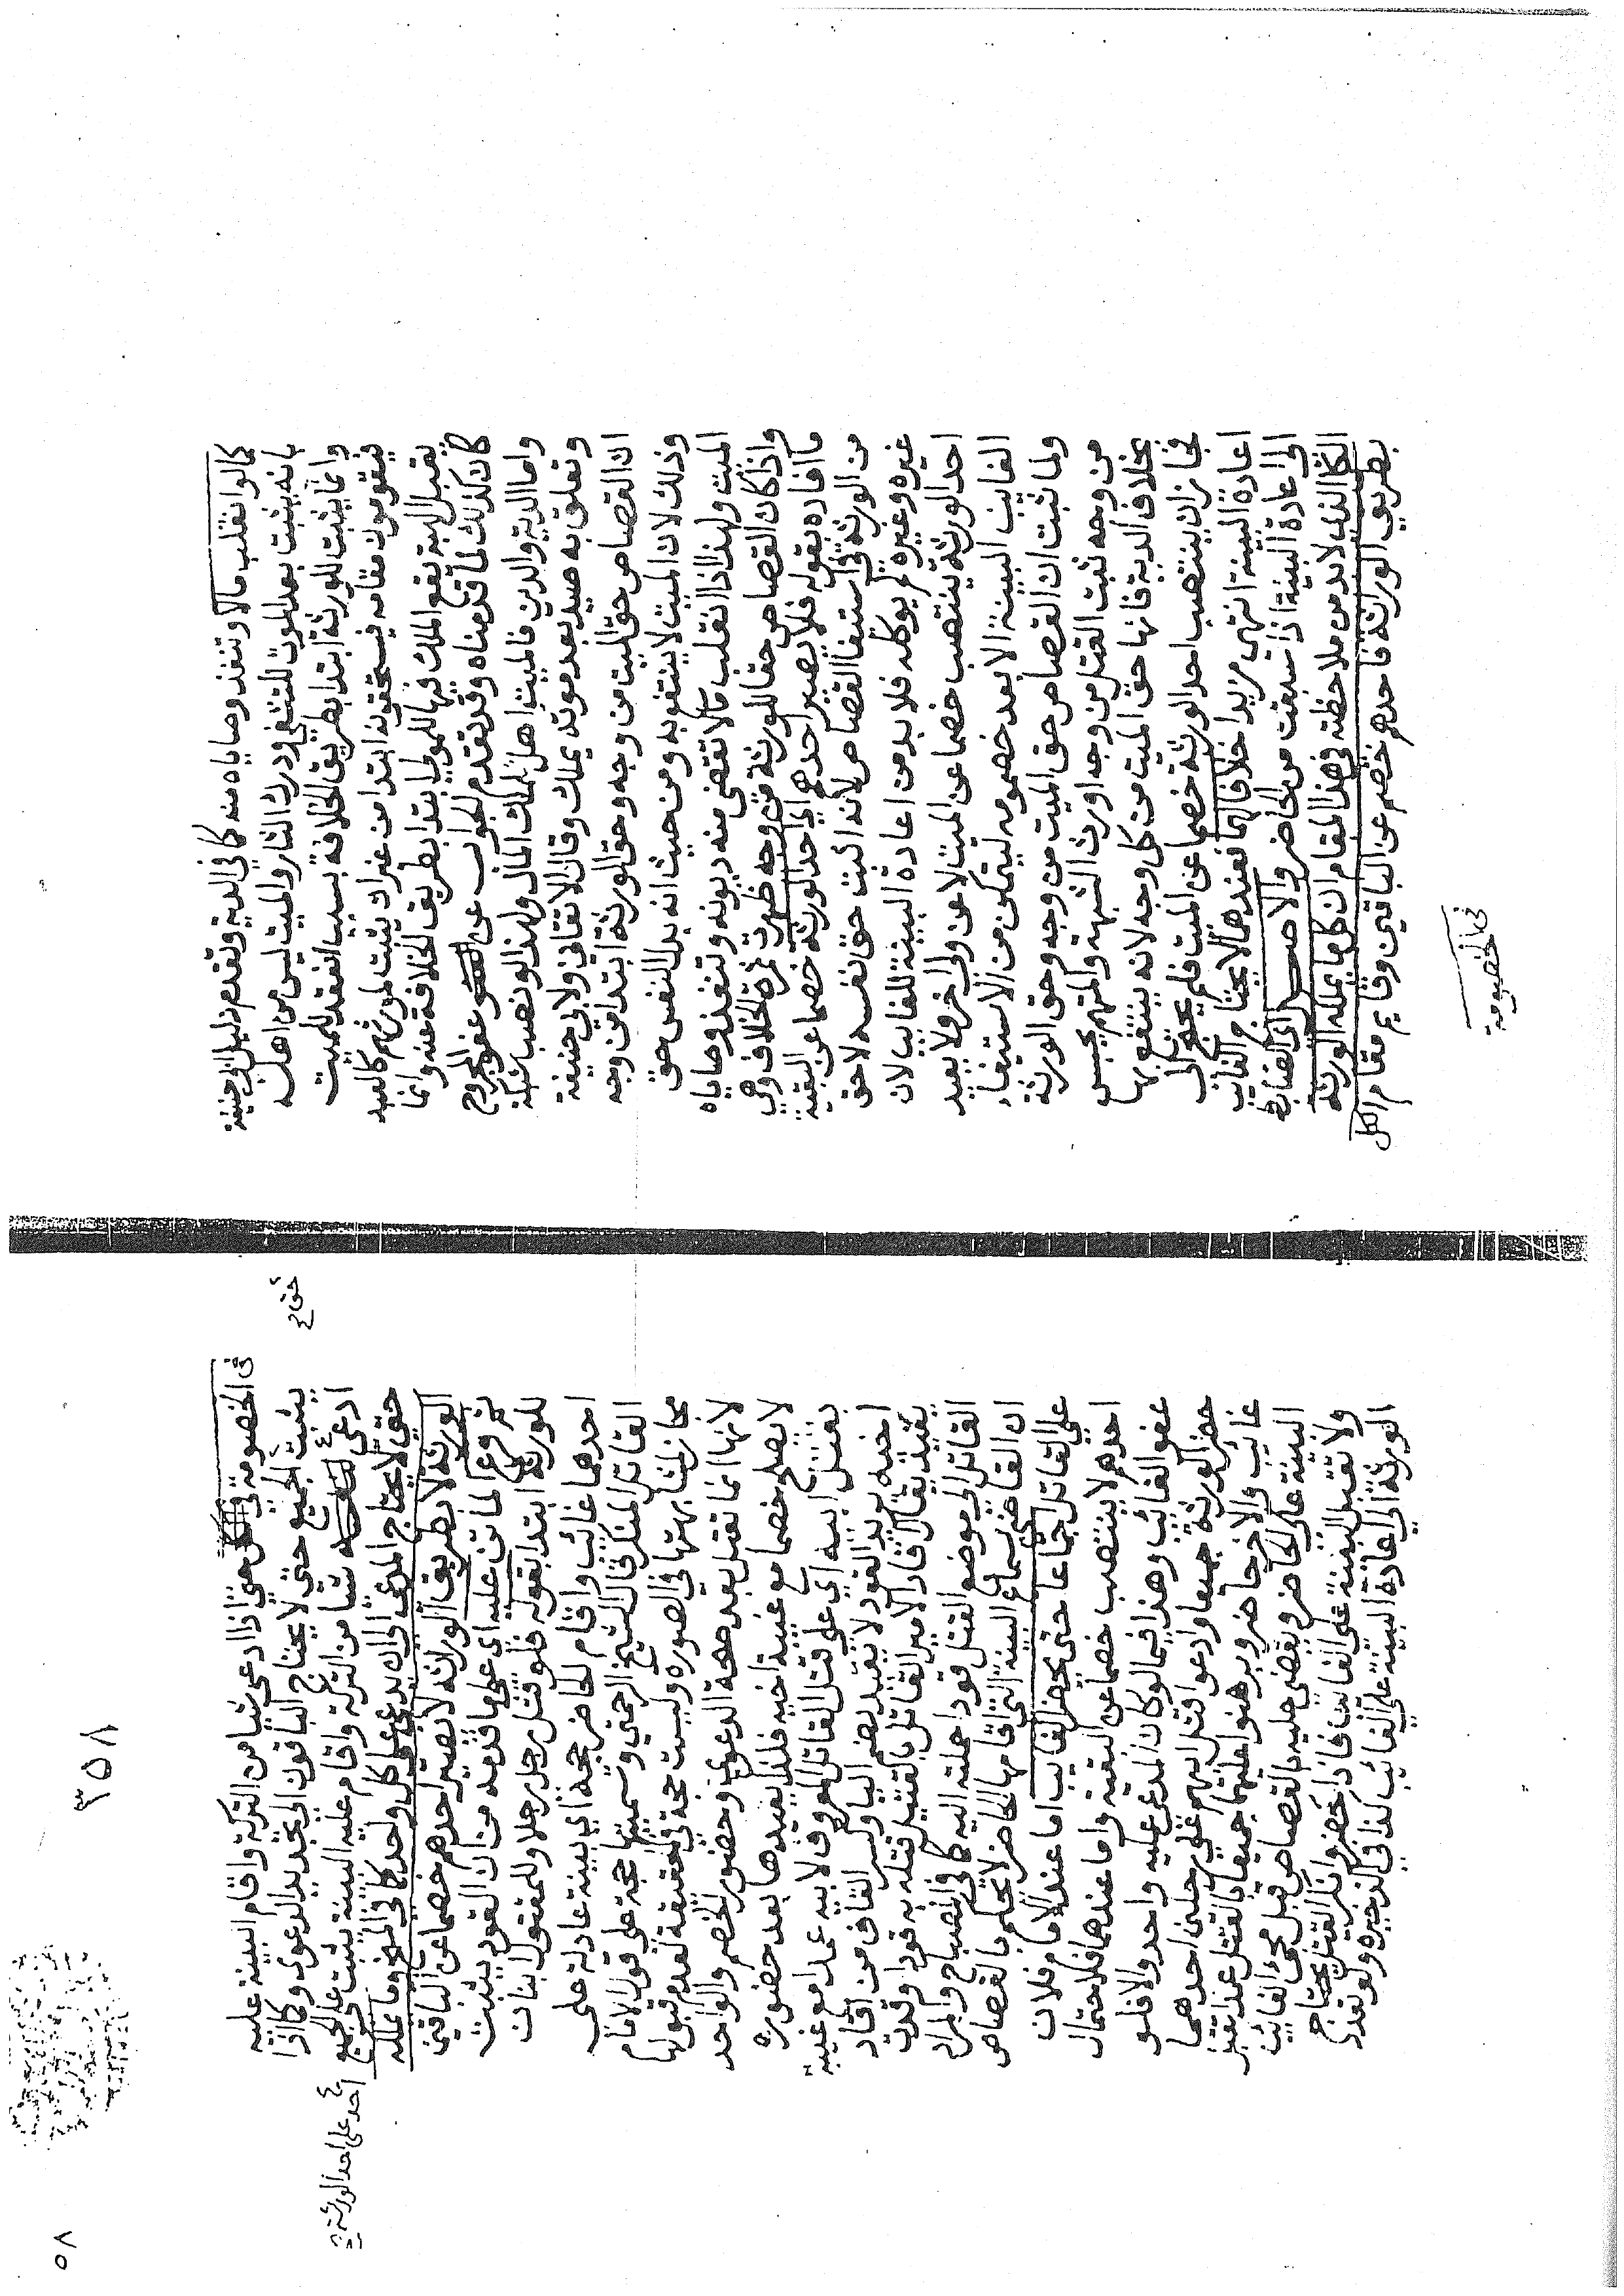 كما لو انقلب مالا وتنفذ وصاياه منه كما في الدية وتقدم دليل ابي حنيفة
بانه يثبت بعد الموت للتشفي ودرك الثار والميت ليس من اهله
وانما يثبت للورثة ابتدا بطريق الخلافة بسبب انعقد للميت
فيقومون مقامه فيستحقونه ابتدا من غير ان يثبت لمورثهم كالعبد
تقبل الهبة يقع الملك فيها للمولى ابتدا بطريق الخلافة عنه وانما
كان كذلك لما قدمناه وقد تقدم الجواب عن عفو المجروح
واما الدية والدين فالميت اهل لملك المال ولهذا لو نصب شبكة
وتعلق به صيد بعد موته يملكه وقال الاتقاني ولابي حنيفة
ان القصاص حق الميت من وجه وحق الورثة ابتدا من وجه
وذلك لان الميت لا ينتفع به ومن حيث انه بدل النفس حق
الميت ولهذا اذا انقلب مالا تقضى منه ديونه وتنفذ وصاياه
واذا كان القصاص حقا للورثة من وجه ظهرت ثمرة الخلاف وهي
ما افاده بقوله فلا يصير احدهم اي احد الورثة خصما عن البقية
من الورثة في استيفا القصاص لانه اثبت حق نفسه لا حق
غيره وغيره لم يوكله فلا بد من اعادة البينة للغايب لان
احد الورثة ينتصب خصما عن الميت لا عن وارث اخر ولا يعيد
الغايب البينة الا بعد خصومه ليتمكن من الاستيفاء
ولما ثبت ان القصاص حق الميت من وجه وحق الورثة
من وجه ثبت القتل من وجه اورث الشبهة والمتهم يحبس
بخلاف الدية فانها حق الميت من كل وجه لانه ينتفع بها
فجاز ان ينتصب احد الورثة خصما عن الميت فلم يحتج الى
اعادة البينة انتهى مزيدا خلافا لهما فعندهما لا يحتاج الغايب
الى اعادة البينة اذا سبقت من الحاضر والاصل اي الضابط
الكلي الذي لا بد من ملاحظته في هذا المقام ان كل ما يملكه الورثة
بطريق الوراثة فاحدهم خصم عن الباقين وقايم مقام الكل
في الخصومة
٣٥٨
٥٨
في الخصومة حتى اذا ادعى شيا من التركة واقام البينة عليه
يثبت الجميع حتى لا يحتاج الباقون الى تجديد الدعوى وكما اذا
حق صح
ادعى شيا من التركة واقام عليه البينة تثبت على الجميع
احد على احد الورثة صح
حتى لا يحتاج المدعي الى ان يدعي على كل واحد كما في المنح وما يملكه
الورثة لا بطريق الوراثة لا يصير احدهم خصما عن الباقين
ثم فرع الماتن عليه اي على ما قدمه من ان القود يثبت
للورثة ابتدا بقوله فلو قتل رجل رجلا وللمقتول ابنان
احدهما غائب واقام الحاضر حجة اي بينة عادلة على
القاتل المنكر قال الشيخ الرحمتي وسميتها حجة على قول الامام
مجاز لشابهتها في الصورة وليست حجة في الحقيقة لعدم قبولها
لانها انما تقبل بعد صحة الدعوى وحضور الخصم والواحد
لا يصلح خصما مع غيبة اخيه فلذا يعيدها بعد حضوره
بقتل ابيه اي على قتل القاتل المعروف لابيه عمدا مع غيبة
اخيه يريد القود لا يقيد بضم اليا وكسر القاف من اقاد
يقيد يقال اقاد الامير القاتل بالقتيل قتله به قودا وقدت
القاتل الى موضع القتل قودا حملته اليه كما في المصباح والمراد
ان القاضي بسماع البينة التي اقامها الحاضر لا يحكم بالقصاص
على القاتل اجماعا حتى يحضر الغايب اما عند الامام فلان
احدهم لا ينتصب خصما عن البقية واما عندهما فلاحتمال
عفو الغائب وهذا فيما لو كان المدعى عليه واحد والا فلو
حضر الورثة جميعا وادعوا قتل ابيهم على رجلين احدهما
غائب والاخر حاضر وبرهنوا عليهما جميعا بالقتل عمدا تقبل
البينة على الحاضر ويقضى عليه بالقصاص قبل مجئ الغائب
ولا تقبل البينة على الغايب فاذا حضر وانكر القتل يحتاج
الورثة الى اعادة البينة على الغائب كذا في الذخيره ولو تعدد